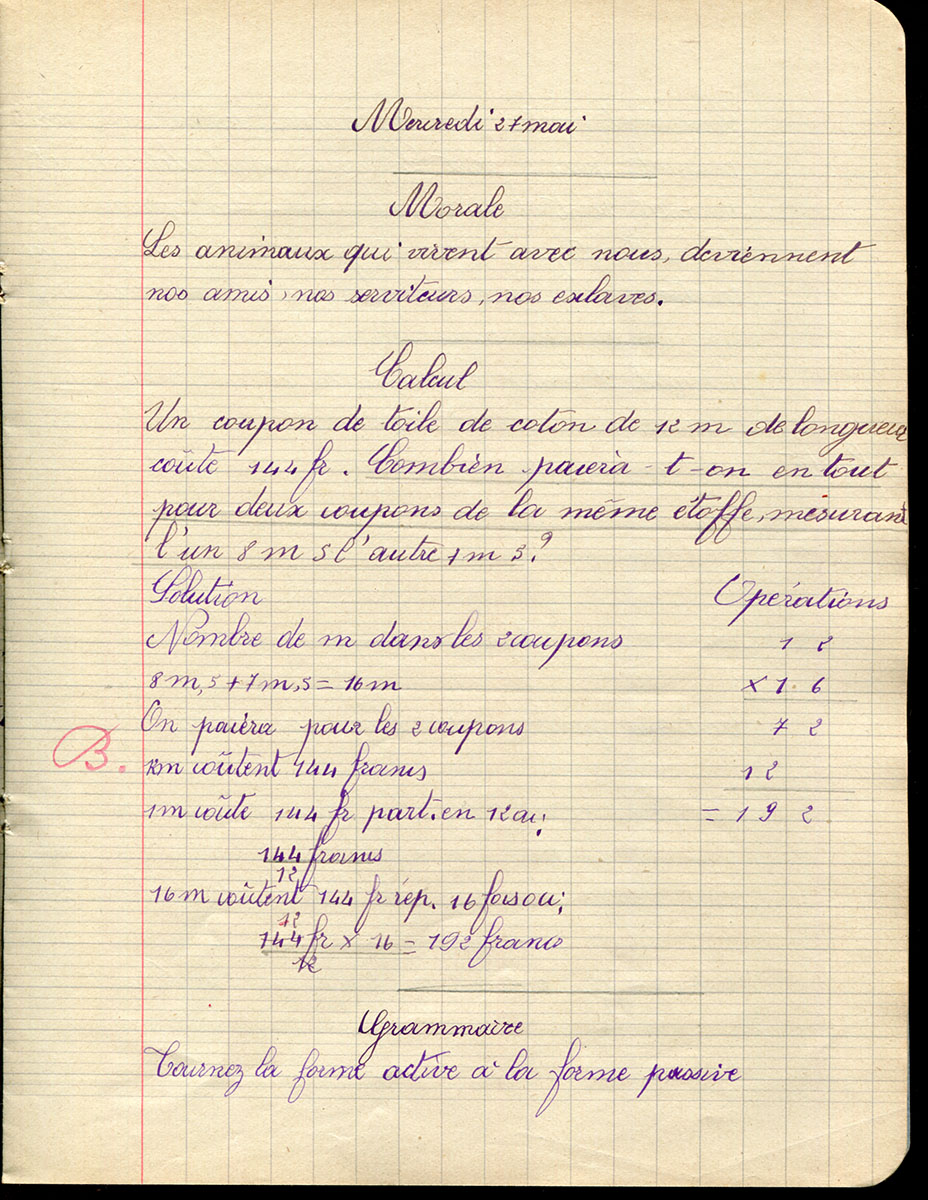 Mercredi 27 mai
Morale
Les animaux qui vivent avec nous, deviennent
nos amis, nos serviteurs, nos esclaves.
Calcul
Un coupon de toile de coton de 12 m de longueur
coûte 144 fr. Combien paiera-t-on en tout
pour deux coupons de la même étoffe, mesurant
l'un 8 m 5 l'autre 7 m 5?
Solution Opérations
Nombre de m dans les 2 coupons 1 2
8 m,5 + 7 m,5 = 16 m × 1 6
On paiera pour les 2 coupons 7 2
B. 12m coûtent 144 francs 1 2
1m coûte 144 fr part. en 12 ou; = 1 9 2
144 francs
12
16 m coûtent 144 fr rép. 16 fois ou;
12
144 fr × 16 = 192 francs
12
Grammaire
Tournez la forme active à la forme passive